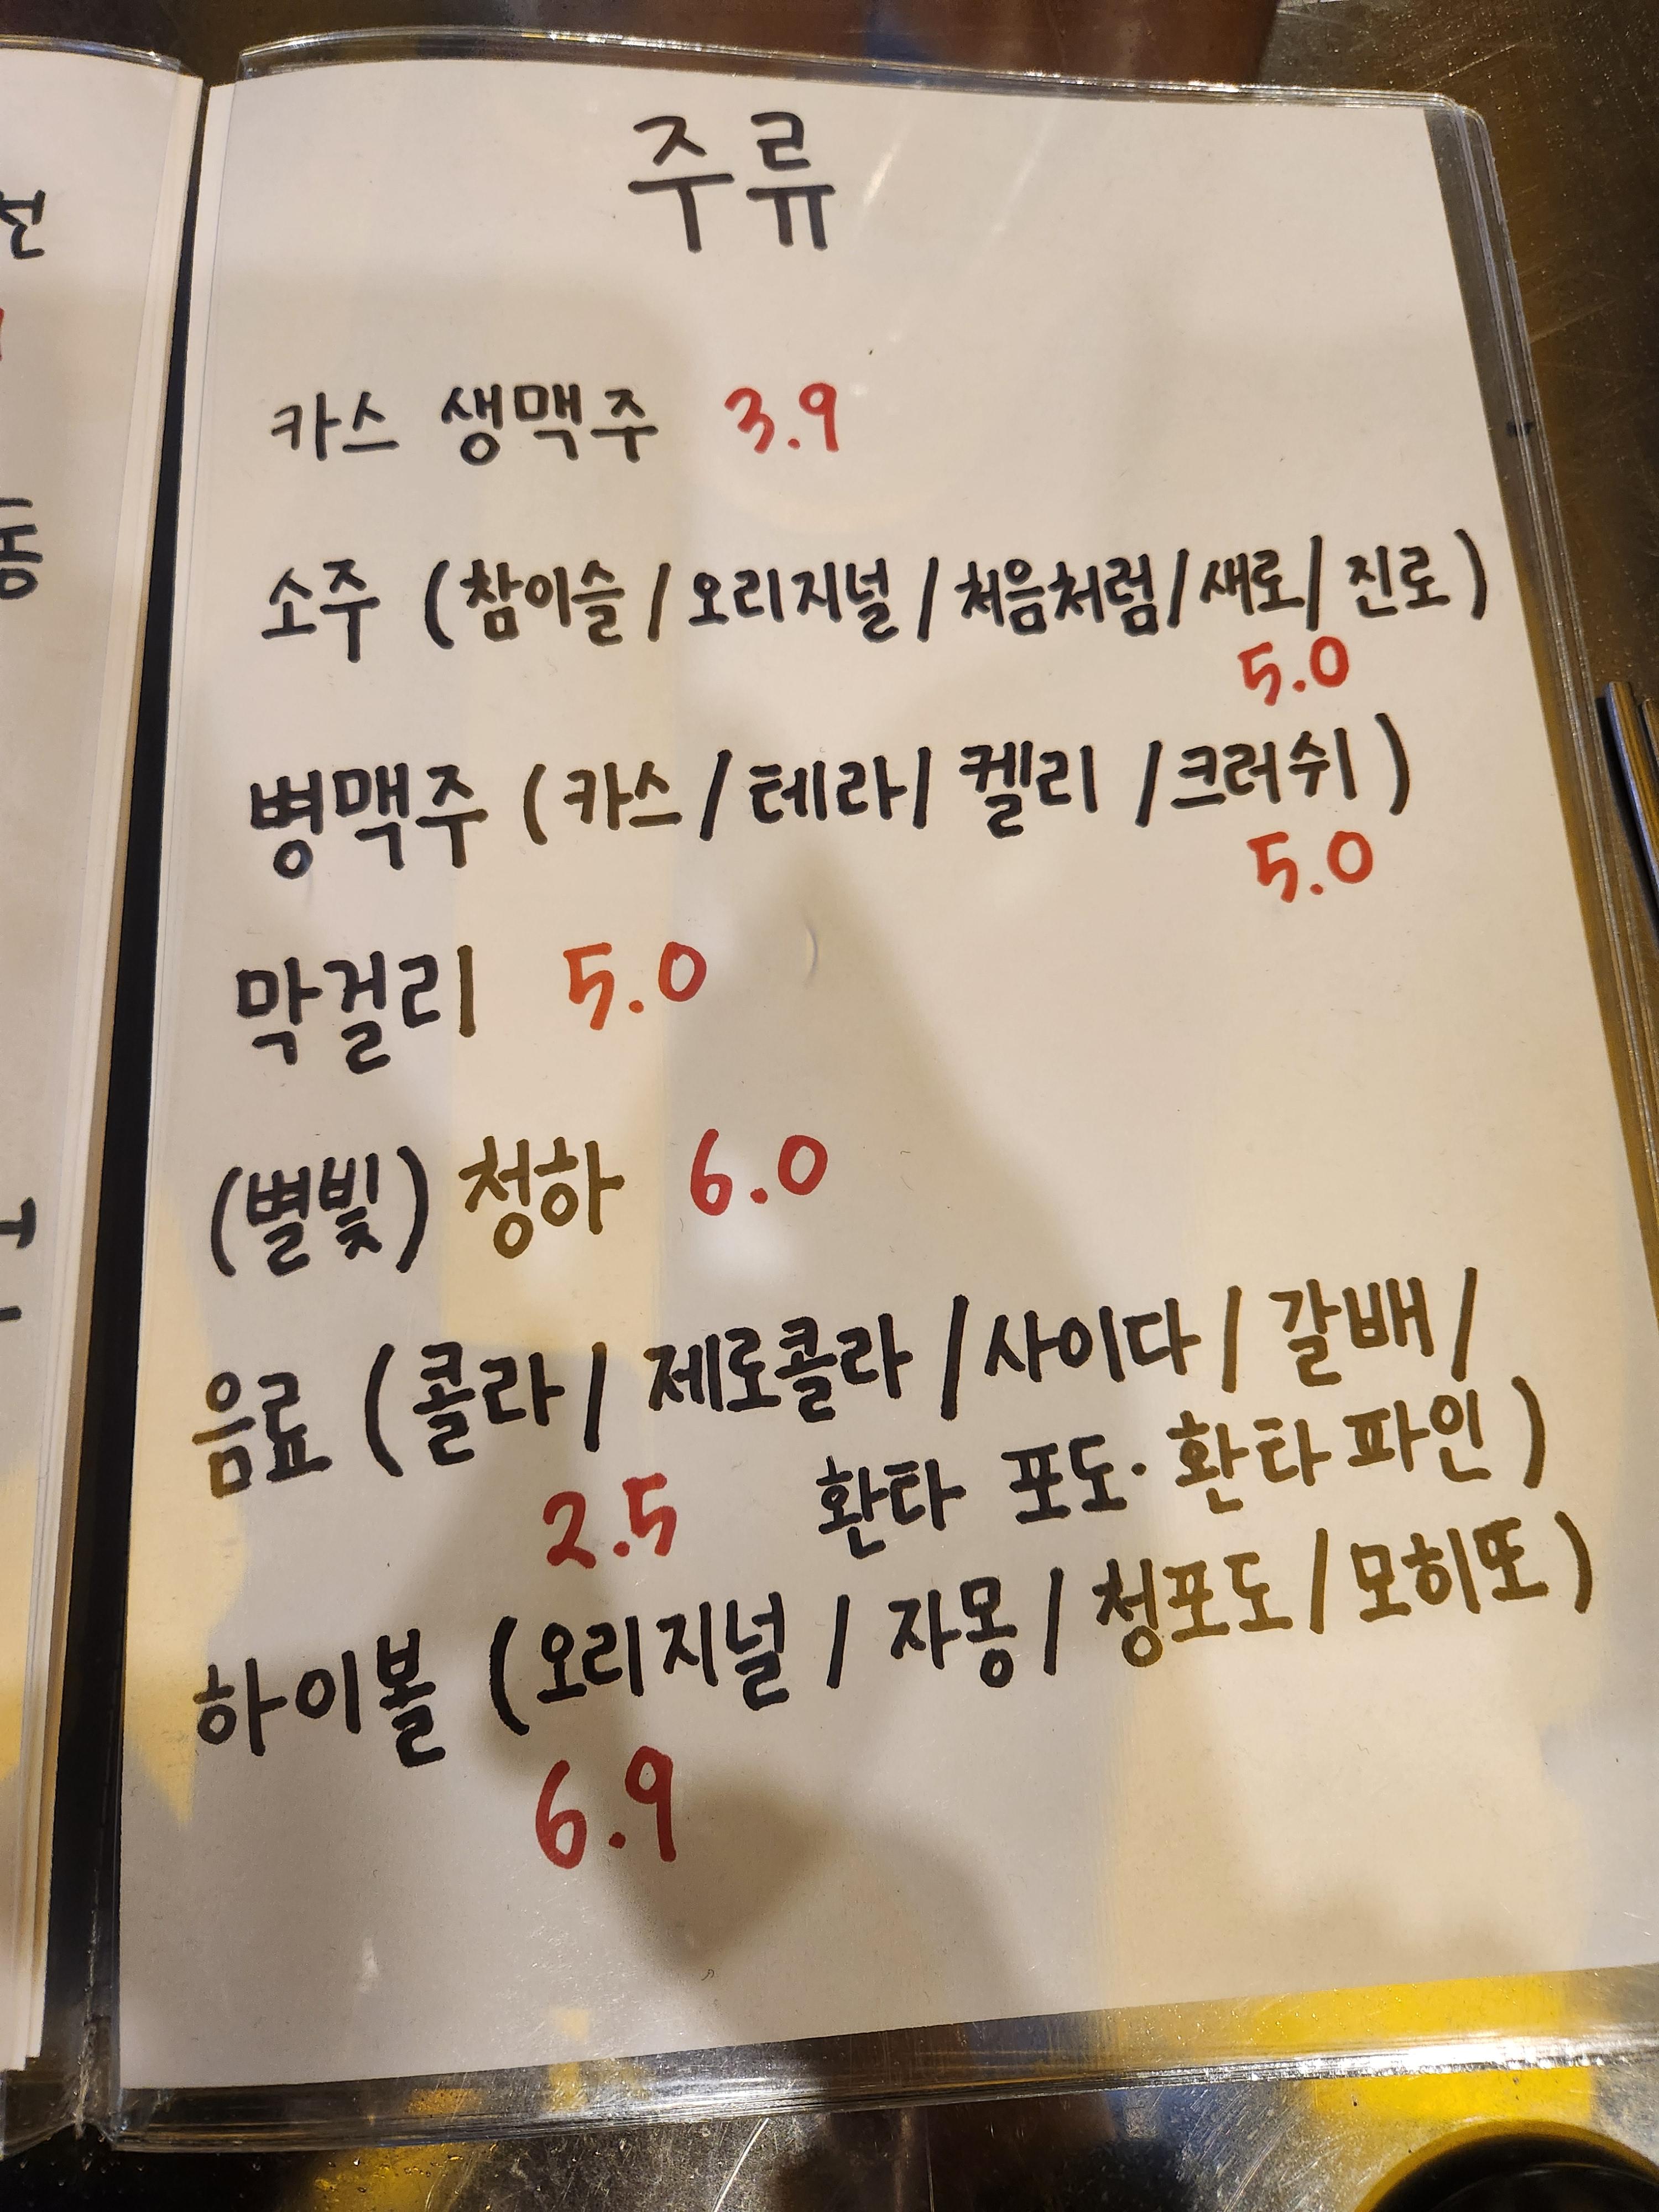 주류
카스 생맥주 3.9
소주 (참이슬/오리지널/처음처럼/새로/진로)
5.0
병맥주 (카스/테라/켈리/크러쉬)
5.0
막걸리 5.0
(별빛) 청하 6.0
음료 (콜라/제로콜라/사이다/갈배/
2.5 환타 포도·환타파인)
하이볼 (오리지널/자몽/청포도/모히또)
6.9